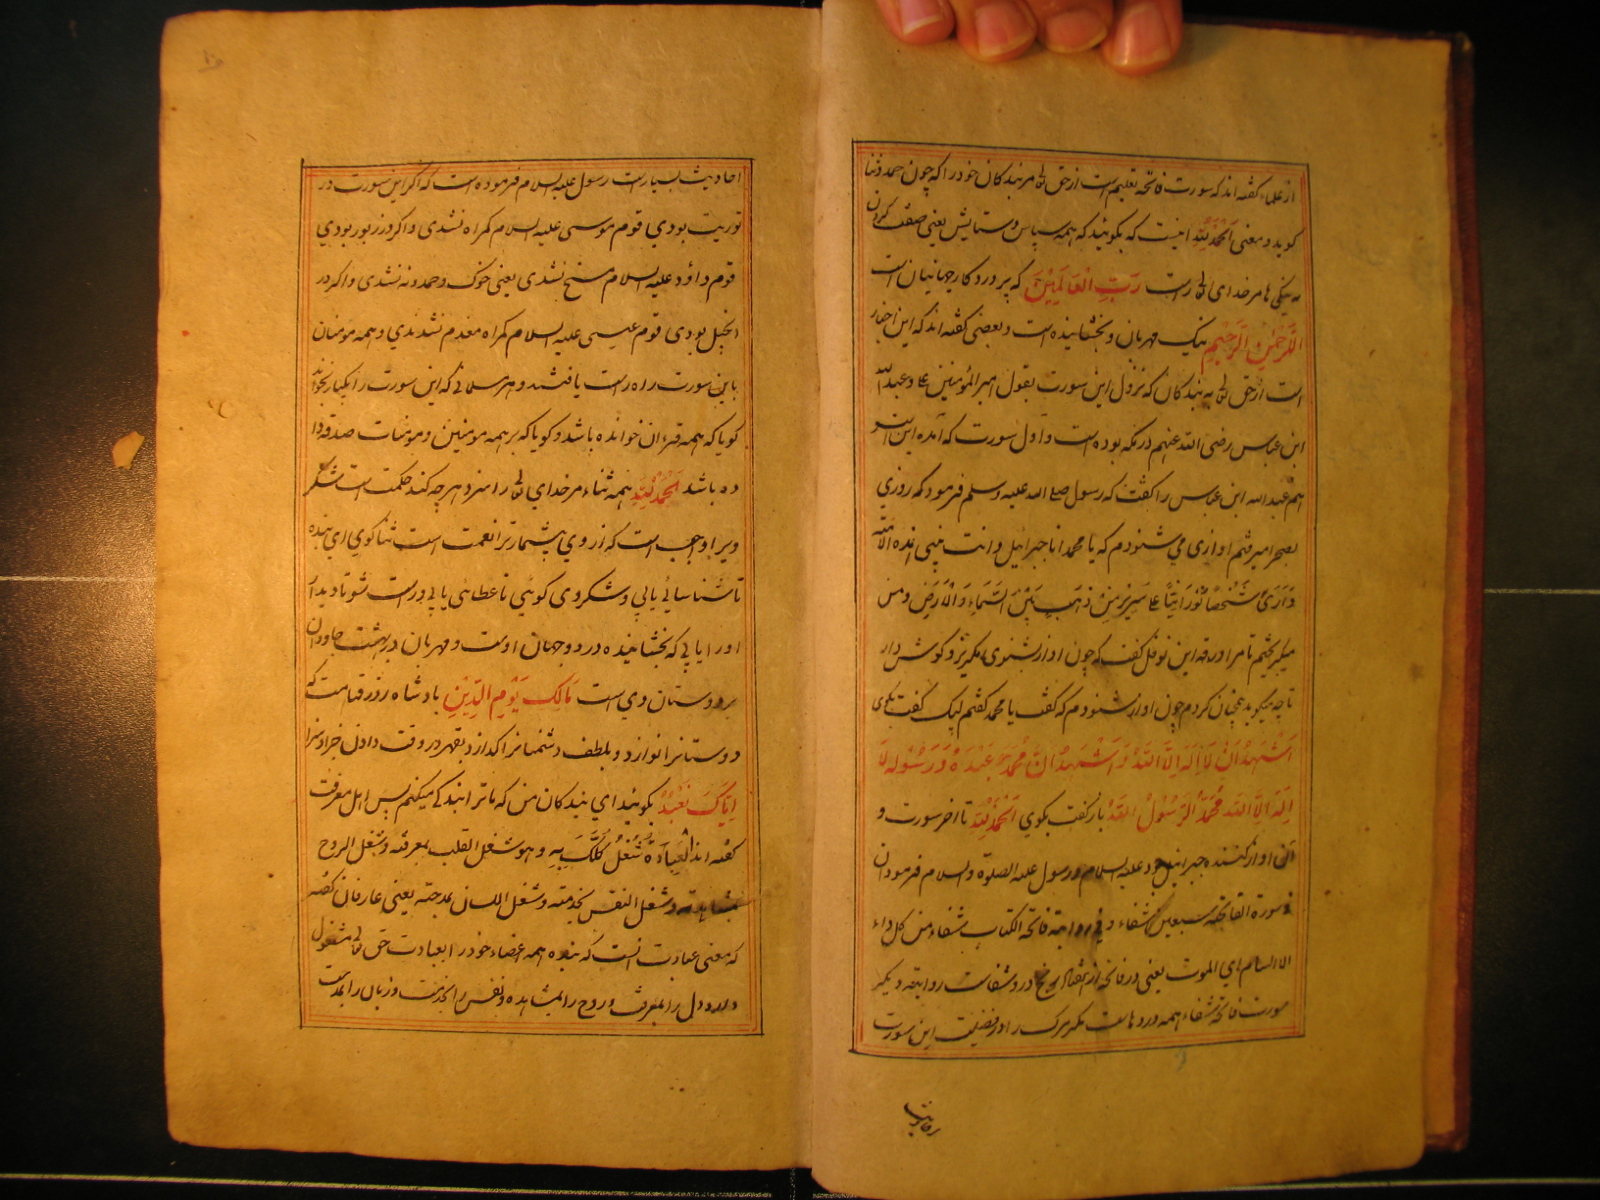 از علماء گفته اند که سورت فاتحه تعلیم است از حق تعالی مر بندکان خود را که چون حمد و ثنا
کویند و معنی اَلْحَمْدُ لِلّٰه اینست که بکوئید که همه سپاس و ستایش یعنی صفت کردن
به نیکی ها مر خدای تعالی راست رَبِّ الْعَالَمِیْنَ که پروردکار جهانیان است
الرَّحْمٰنِ الرَّحِیْمِ نیک مهربان و بخشاینده است و بعضی کفته اند که این اخبار
است از حق تعالی به بندکان که نزول این سورت بقول امیر المؤمنین علی و عبد الله
ابن عباس رضی الله عنهم در مکه بوده است و اول سورت که آمده این است
هم عبد الله ابن عباس را کفت که رسول صلی الله علیه وسلم فرمود که روزی
بصحرا میرفتم اوازی می شنودم که یا محمد انا جبرایل و انت نبی هذه الامة
وَ اَرَیٰ شَخْصًا نُوْرَانِیًّا علی سَرِیْرٍ مِنْ ذَهَبٍ بَیْنَ السَّمَاءِ وَ الْاَرْضِ و من
میکریختم تا مرا ورقه ابن نوفل کفت که چون اواز شنوی مکریز و کوش دار
تا چه میکوید همچنان کردم چون اواز شنودم که کفت یا محمد کفتم لبیک کفت بکوی
اَشْهَدُ اَنْ لَا اِلٰهَ اِلَّا اللّٰهُ وَ اَشْهَدُ اَنَّ مُحَمَّدًا عَبْدُهُ وَ رَسُوْلُهُ لَا
اِلٰهَ اِلَّا اللّٰه مُحَمَّدٌ الرَّسُوْلُ اللّٰه باز کفت بکوی اَلْحَمْدُ لِلّٰه تا اخر سورت و
آن اواز کننده جبرایل بود علیه السلام و رسول علیه الصلوة و السلام فرمود ان
فی سورة الفاتحة سبعین شفاء و فی روایة فاتحة الکتاب شفاء من کل داء
الا السام ای الموت یعنی در فاتحه از هفتاد رنج و درد شفاست روایت دیکر
سورت فاتحه شفاء همه دردهاست مکر مرک را و در فضیلت این سورت
احادیث بسیار است رسول علیه السلام فرموده است که اکر این سورت در
توریت بودی قوم موسی علیه السلام کمراه نشدی و اکر در زبور بودی
قوم داؤد علیه السلام مسخ نشدی یعنی خوک و حمدونه نشدی و اکر در
انجیل بودی قوم عیسی علیه السلام کمراه نشدندی و همه مومنان
باین سورت راه راست یافتند و هر مسلمانی که این سورت را یکبار بخواند
کویا که همه قران خوانده باشد و کویا که بر همه مومنین و مومنات صدقه دا
ده باشد اَلْحَمْدُ لِلّٰهِ همه ثناء مر خدای تعالی را سزد هر چه کند حکمت است شکر
ویرا واجب است که از وی بیشمار ترا نعمت است ثنا کوی ای بنده
تا شناسائی یابی و شکر وی کوئی تا عطا یابی و راست شو تا دیدار
او را یابی که بخشاینده در دو جهان اوست و مهربان در بهشت جاودان
بر دوستان وی است مَالِکِ یَوْمِ الدِّیْنِ بادشاه روز قیامت که
دوستانرا نوازد و بلطف دشمنانرا کدازد بقهر در وقت دادن جزا و سزا
اِیَّاکَ نَعْبُدُ بکوئید ای بندکان من که ما ترا بندکی میکنیم پس اهل معرفت
کفته اند الْعِبَادَةُ شُغْلُ کُلِّکَ بِهِ و هو شغل القلب بمعرفته و شغل الروح
بمشاهدته و شغل النفس بخدمته و شغل اللسان بمدحته یعنی عارفان کفته
که معنی عبادت انست که بنده همه اعضاء خود را بعبادت حق تعالی مشغول
دارد دل را بمعرفت و روح را بمشاهده و نفس را بخدمت و زبان را بمدحت